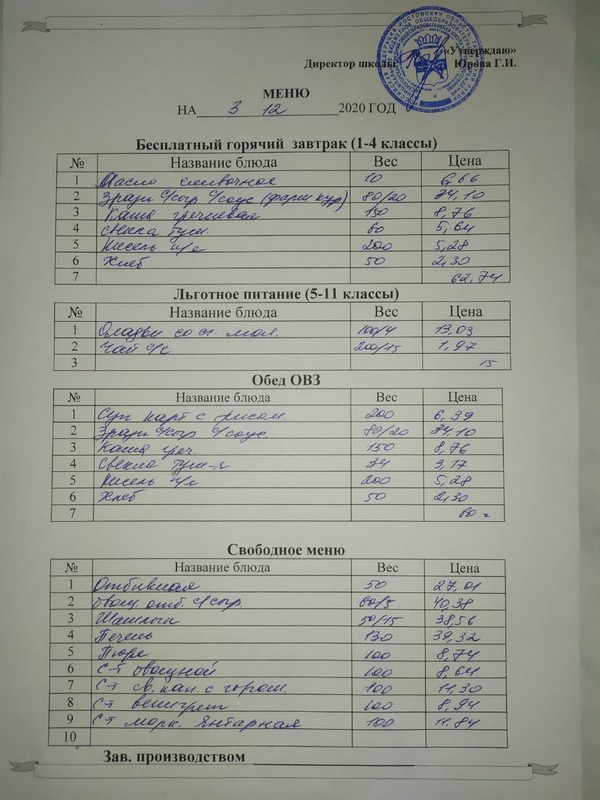 «Утверждаю»
Директор школы Юрова Г.И.
МЕНЮ
НА 3 12 2020 ГОД
Бесплатный горячий завтрак (1-4 классы)
№ Название блюда Вес Цена
1 Масло сливочное 10 6,66
2 Зразы с/сыр с/соус (фарш кур) 80/20 34,10
3 Каша гречневая 150 8,76
4 свекла туш. 60 5,64
5 Кисель п/я 200 5,28
6 Хлеб 50 2,30
7 62,74
Льготное питание (5-11 классы)
№ Название блюда Вес Цена
1 Оладьи со сг. мол. 100/4 13,03
2 Чай с/с 200/15 1,97
3 15
Обед ОВЗ
№ Название блюда Вес Цена
1 Суп карт с рисом. 200 6,39
2 Зразы с/сыр с/соус. 80/20 34,10
3 Каша греч. 150 8,76
4 Свекла туш-я 34 3,17
5 Кисель п/я 200 5,28
6 Хлеб 50 2,30
7 60
Свободное меню
№ Название блюда Вес Цена
1 Отбивная 50 27,01
2 отб. с/сыр 60/5 40,38
3 Шашлык 50/15 38,56
4 Печень 130 39,32
5 Пюре 100 8,74
6 С-т овощной 100 8,64
7 С-т св. кап. с горош. 100 11,30
8 С-т винегрет 100 8,94
9 С-т морк. Янтарная 100 11,84
10
Зав. производством